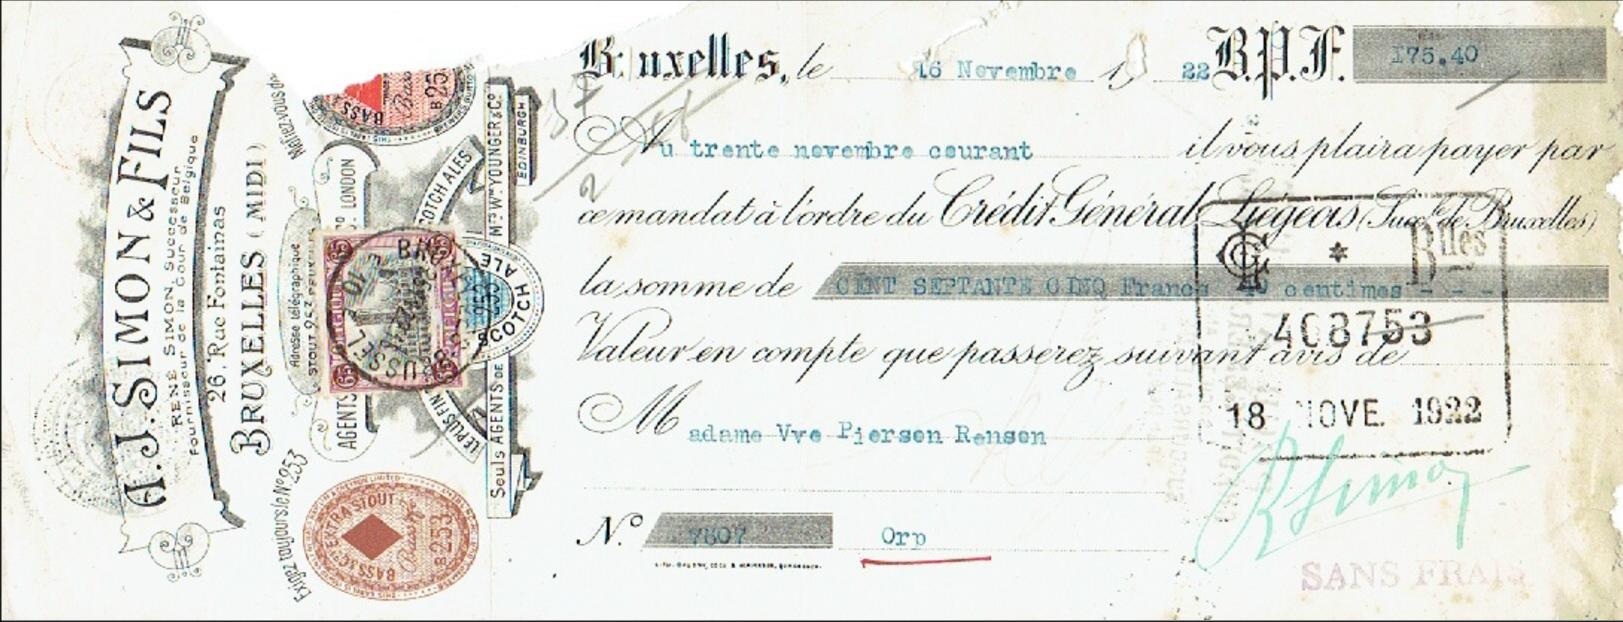 Bruxelles, le 16 Novembre 1922 B.P.F. 175.40
Au trente novembre courant il vous plaira payer par
ce mandat à l'ordre du Crédit Général Liégeois (Succle de Bruxelles)
la somme de CENT SEPTANTE CINQ Francs 40 centimes - - -
Valeur en compte que passerez suivant avis de
Madame Vve Piersen Rensen
N.° 7607 Orp
408753
18 NOVE. 1922
Bxlles
RSimon
SANS FRAIS
A.J. SIMON & FILS
RENÉ SIMON, Successeur
Fournisseur de la Cour de Belgique
26, Rue Fontainas
BRUXELLES (MIDI)
Méfiez-vous des
Adresse télégraphique
STOUT 253
Exigez toujours le N° 253
AGENTS LONDON
SCOTCH ALES
LE PLUS FIN
SCOTCH ALE
253
Seuls AGENTS DE MM. Wm. YOUNGER & C°
EDINBURGH
BASS & Co EXTRA STOUT
B 253
BASS
B 253
65 65 65
BELGIQUE BELGIE
BRUSSEL